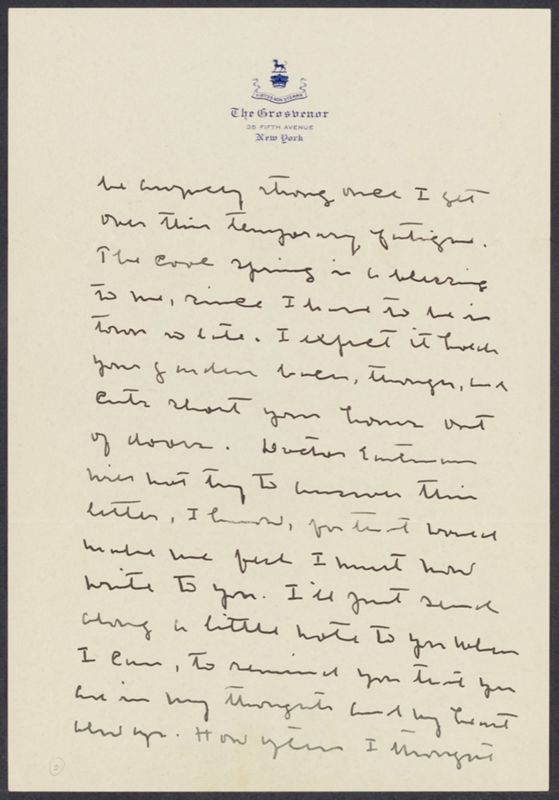 The Grosvenor
35 FIFTH AVENUE
New York
be strong once I get
over this temporary fatigue.
The cool spring is a blessing
to me, since I have to be in
town so late. I expect it holds
your garden back, though, and
cuts short your hours out
of doors. Doctor Eastman
will not try to answer this
letter, I know, for that would
make me feel I must not
write to you. I'll just send
along a little note to you when
I can, to remind you that you
are in my thoughts and my heart
always. How often I thought